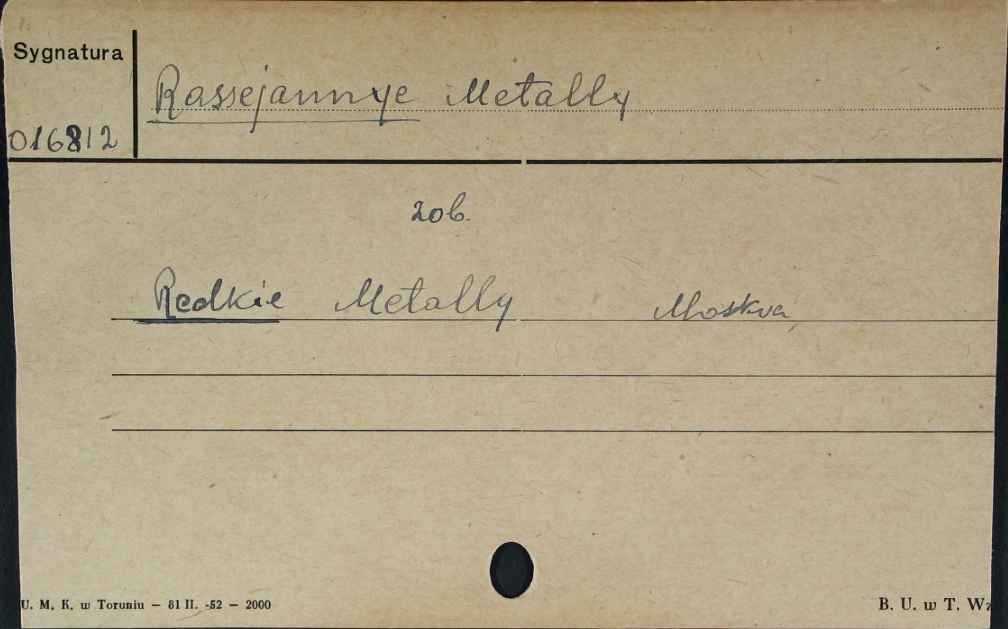 Sygnatura
Rassejannye Metally
016812
zob.
Redkie Metally Moskva,
U. M. K. w Toruniu — 81 II. -52 — 2000
B. U. w T.